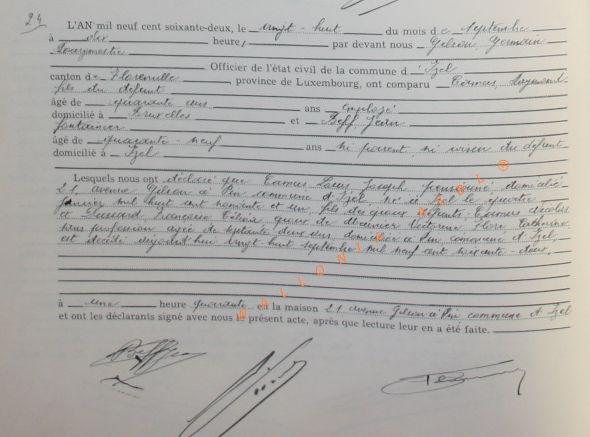 24
L'AN mil neuf cent soixante-deux, le vingt-huit du mois de septembre
à dix heure, par devant nous Gilson, Germain
Bourgmestre
Officier de l'état civil de la commune d'Izel
canton de Florenville, province de Luxembourg, ont comparu Tasmes, Raymond
fils du défunt
âgé de quarante ans ans employé
domicilié à Bruxelles et Beff Jean
fontainier
âgé de quarante-neuf ans ni parent, ni voisin du défunt
domicilié à Izel
Lesquels nous ont déclaré que Louis, Joseph pensionné, domicilié
21, avenue Gilson à Pin commune d'Izel, né à Izel le quatre
janvier mil huit cent nonante et un, fils des époux défunts Nicolas
et Françoise époux de Meunier Victorine Flore,
sans profession agée de septante deux ans, domiciliée à Pin commune d'Izel,
est décédé aujourd'hui vingt huit septembre mil neuf cent soixante-deux,
à une heure quarante en la maison 21 avenue Gilson à Pin commune d'Izel
et ont les déclarants signé avec nous le présent acte, après que lecture leur en a été faite.